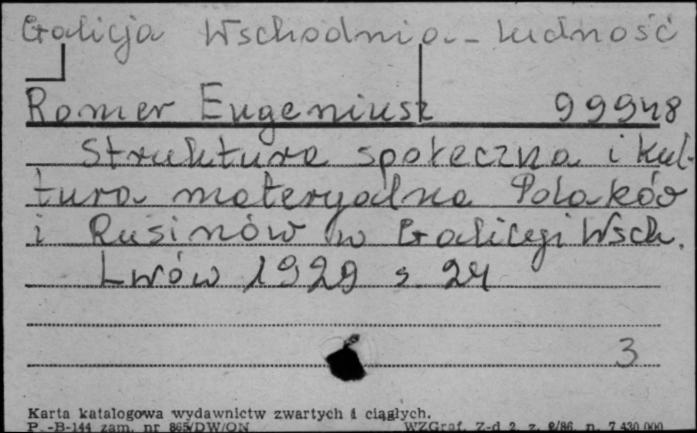 Galicja Wschodnia - ludność
Romer Eugeniusz 99948
Struktura społeczna i kul-
tura materyalna Polaków
i Rusinów w Galicyi Wsch.
Lwów 1929 s. 24
3
Karta katalogowa wydawnictw zwartych i ciągłych.
P.-B-144 zam. nr 865/DW/ON WZGraf. Z-d 2, z. 2/86, n. 7 430 000